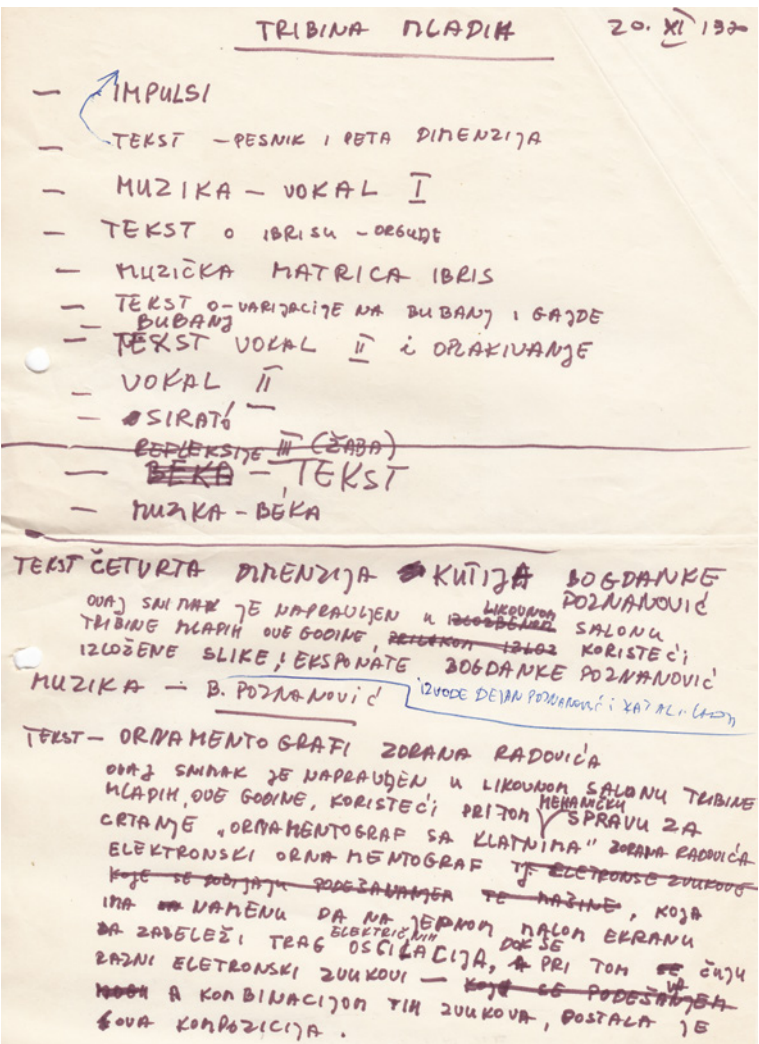 TRIBINA MLADIH 20. XI 1970
— IMPULSI
— TEKST – PESNIK I PETA DIMENZIJA
— MUZIKA – VOKAL I
— TEKST O IBRISU – ORGULJE
— MUZIČKA MATRICA IBRIS
— TEKST O – VARIJACIJE NA BUBANJ I GAJDE
— BUBANJ
— TEKST VOKAL II i OPLAKIVANJE
— VOKAL II
— SIRATÓ
REFLEKSIJE III (ŽABA)
— BÉKA – TEKST
— MUZIKA – BÉKA
TEKST ČETVRTA DIMENZIJA KUTIJA BOGDANKE
POZNANOVIĆ
OVAJ SNIMAK JE NAPRAVLJEN U LIKOVNOM SALONU
TRIBINE MLADIH OVE GODINE, PRILIKOM IZLOŽ KORISTEĆI
IZLOŽENE SLIKE I EKSPONATE BOGDANKE POZNANOVIĆ
MUZIKA — B. POZNANOVIĆ
IZVODE DEJAN POZNANOVIĆ i
TEKST – ORNAMENTOGRAFI ZORANA RADOVIĆA
OVAJ SNIMAK JE NAPRAVLJEN U LIKOVNOM SALONU TRIBINE
MLADIH, OVE GODINE, KORISTEĆI PRITOM MEHANIČKU SPRAVU ZA
CRTANJE „ORNAMENTOGRAF SA KLATNIMA" ZORANA RADOVIĆA
ELEKTRONSKI ORNAMENTOGRAF TJ. ELETRONSE ZVUKOVE
KOJE SE DOBIJAJU PODEŠAVANJEM TE MAŠINE, KOJA
IMA NAMENU DA NA JEDNOM MALOM EKRANU
ZABELEŽI TRAG ELEKTRIČNIH OSCILACIJA, DOK SE PRI TOM ČUJU
RAZNI ELETRONSKI ZVUKOVI — KOJE SE PODEŠANJEM
A KOMBINACIJOM TIH ZVUKOVA, POSTALA JE
OVA KOMPOZICIJA.